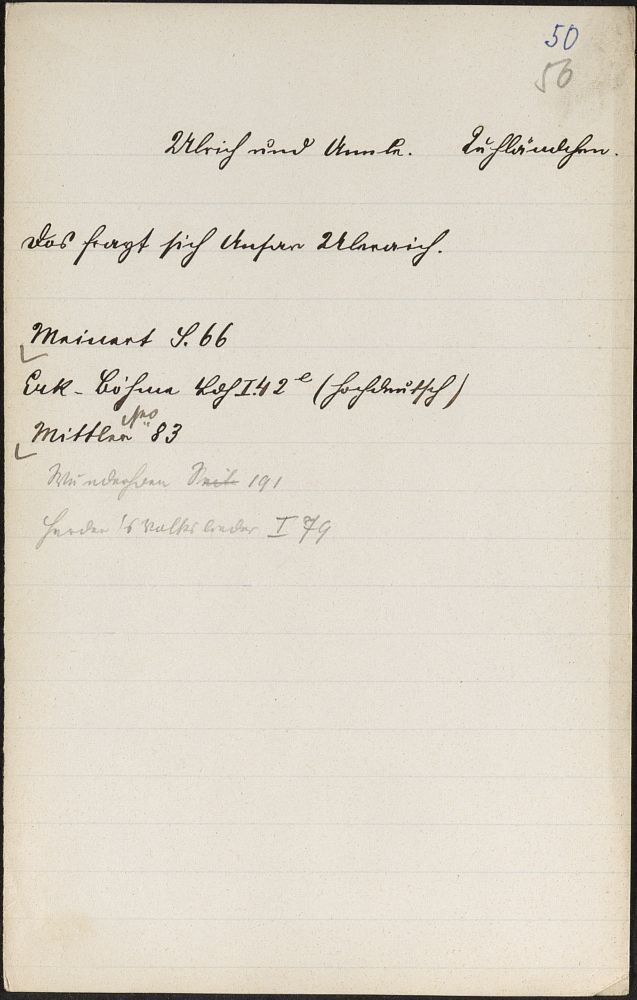 50
56
Ulrich und Annle. Kuhländchen.
Das fragt sich Unser Uleraich.
Meinert S. 66
Erk-Böhme Ldh I. 42 e (hochdeutsch)
Mittler No 83
Wunderhorn Seite 191
Herder's Volkslieder I 79